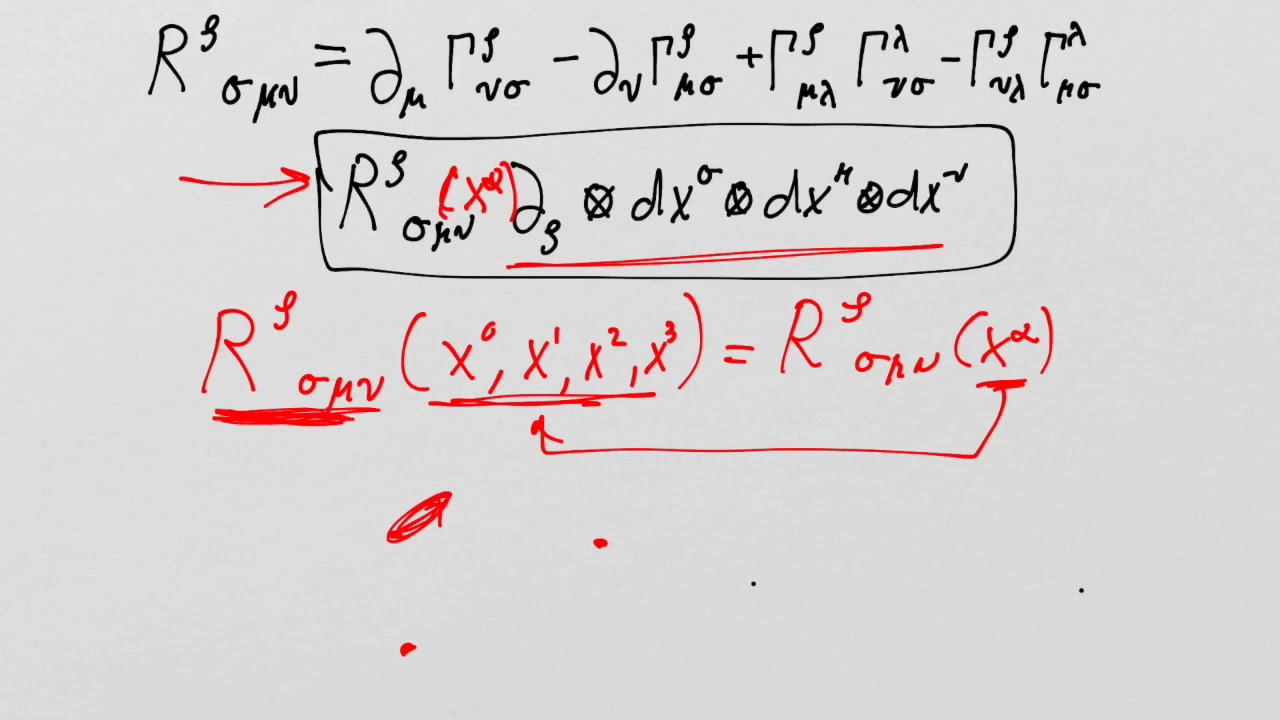 R^ρ_σμν = ∂_μ Γ^ρ_νσ − ∂_ν Γ^ρ_μσ + Γ^ρ_μλ Γ^λ_νσ − Γ^ρ_νλ Γ^λ_μσ
R^ρ_σμν (x^α) ∂_ρ ⊗ dx^σ ⊗ dx^μ ⊗ dx^ν
R^ρ_σμν (x^0, x^1, x^2, x^3) = R^ρ_σμν (x^α)